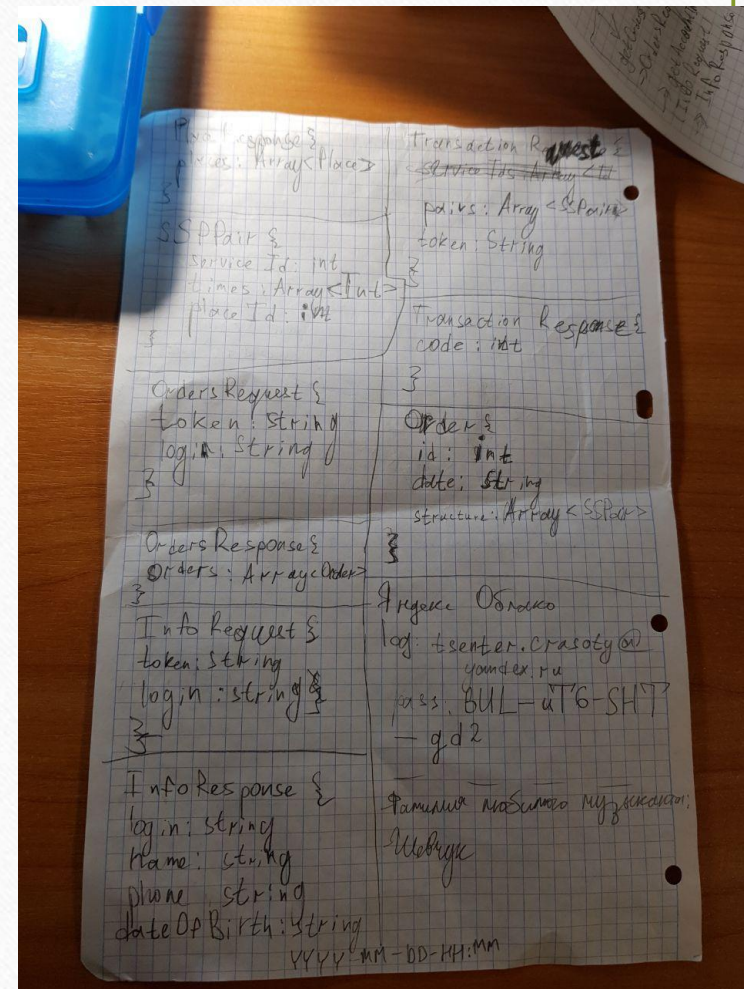 places: Array<Place>
}
SSPPair {
service Id: int
times: Array<Int>
place Id: int
}
Orders Request {
token: String
login: String
}
Orders Response {
Orders: Array<Order>
}
Info Request {
token: String
login: string }
}
Info Response {
login: string
name: string
phone string
dateOfBirth: String
YYYY MM-DD-HH:MM
Transaction Request {
service Ids: Array<Id
pairs: Array<SSPair>
token: String
}
Transaction Response {
code: int
}
Order {
id: int
date: String
structure: Array<SSPair>
}
Яндекс Облако
log: tsenter.crasoty@
yandex.ru
pass. BUL-uT6-SHT
- gd2
Фамилия любимого музыканта:
Шевчук